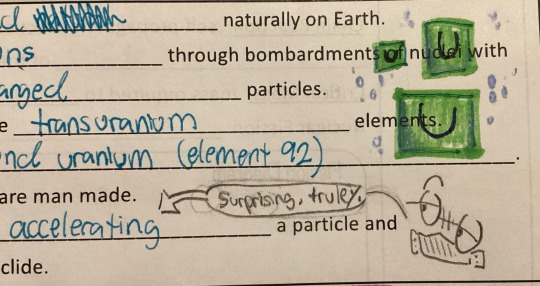 naturally on Earth.
ns through bombardments of nuclei with
arged particles.
e transuranium elements.
nd uranium (element 92).
are man made. Surprising, truley.
accelerating a particle and
clide.